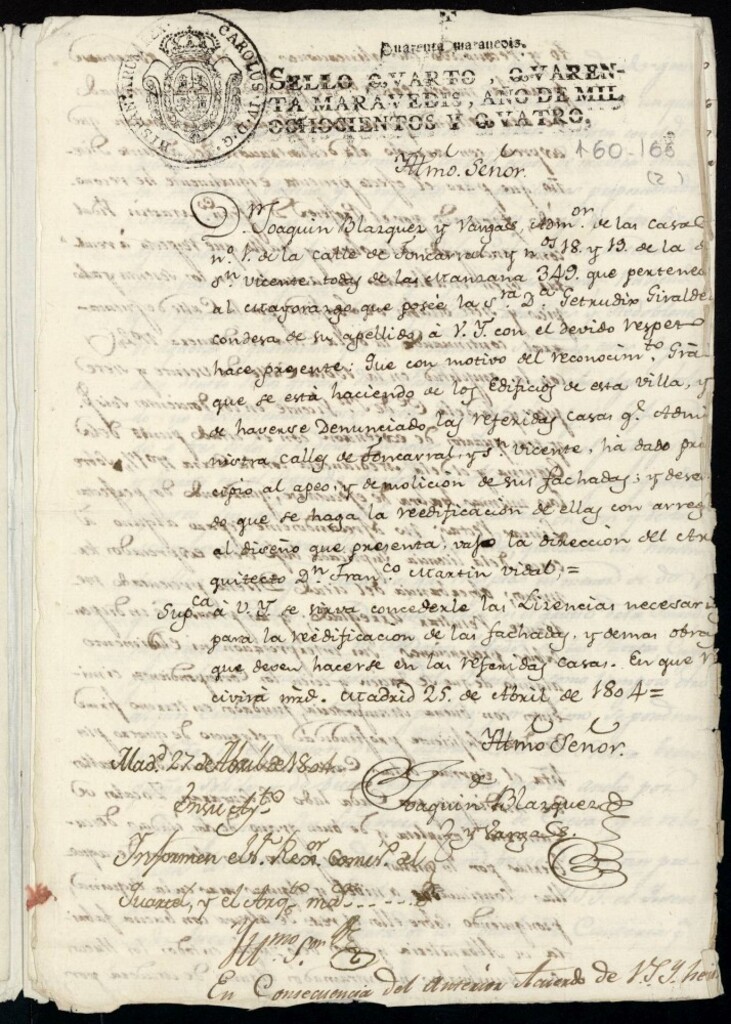 Quarenta maravedis.
HISPANIARUM REX CAROLUS IV D. G.
SELLO QVARTO, QVAREN-
TA MARAVEDIS, AÑO DE MIL
OCHOCIENTOS Y QVATRO.
160-168
(2)
Yltmo. Señor.
Dn. Joaquin Blazquez y Vargas, Admor. de las casas
nº. 1. de la calle de Foncarral, y nos. 18. y 19. de la de
Sn. Vicente todas de la Manzana 349. que pertenec
al Mayorazgo que posée la Sra. Da. Getrudix Giralde
condesa de su apellido, à V. Y. con el devido respet
hace presente: Que con motivo del reconocimto. Gra
que se está haciendo de los Edificios de esta villa, y
de haverse Denunciado las referidas casas q. Admi
nistra calles de Foncarral, y Sn. Vicente, ha dado prin
cipio al apeo, y demolicion de sus fachadas; y desean
do que se haga la reedificación de ellas con arreg
al diseño que presenta, vajo la dirección del Ar
quitecto Dn. Franco. Martin Vidal,=
Supca. à V. Y. se sirva concederle las Licencias necesari
para la reedificacion de las fachadas, y demas obras
que deven hacerse en las referidas casas. En que re
civirá mrd. Madrid 25. de Abril de 1804=
Yltmo Señor.
Madd. 27 de Abril de 1804
Joaquin Blazquez
En su Ayto.
y Vargas.
Informen el Sr. Rexor. Comiso. del
Quartel, y el Arqto. mor.
Yllmo. Sor.
En Consecuencia del anterior Acuerdo de V.S.Y. he